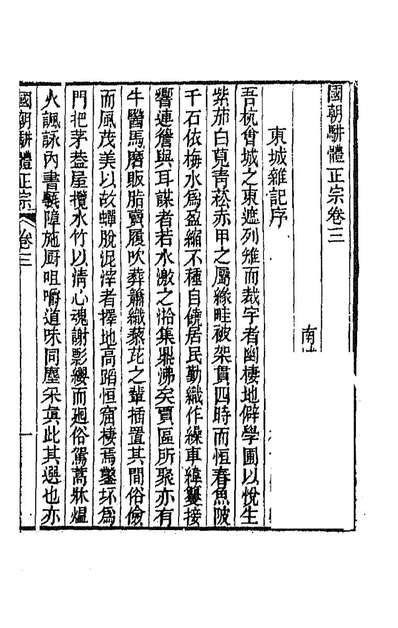 國朝駢體正宗卷三
南
東城雜記序
吾杭會城之東遮列雉而裁宇者幽棲地僻學圃以悅生
紫茄白莧青菘赤甲之屬緣畦被架貫四時而恒春魚陂
千石依梅水爲盈縮不種自饒居民勤織作繰車緯籰接
響連簷與耳謀者若水激之湁集鼎沸矣賈區所聚亦有
牛醫馬磨販脂賣履吹葬簫織蔾芘之輩插置其間俗儉
而風茂美以故蟬脫泥滓者擇地高蹈恒窟棲焉鑿坏爲
門把茅葢屋攬水竹以情心魂謝影纓而迴俗駕蒿牀煴
火諷詠內書甎障施厨咀嚼道味同塵采眞此其選也亦
國朝駢體正宗
卷三
一